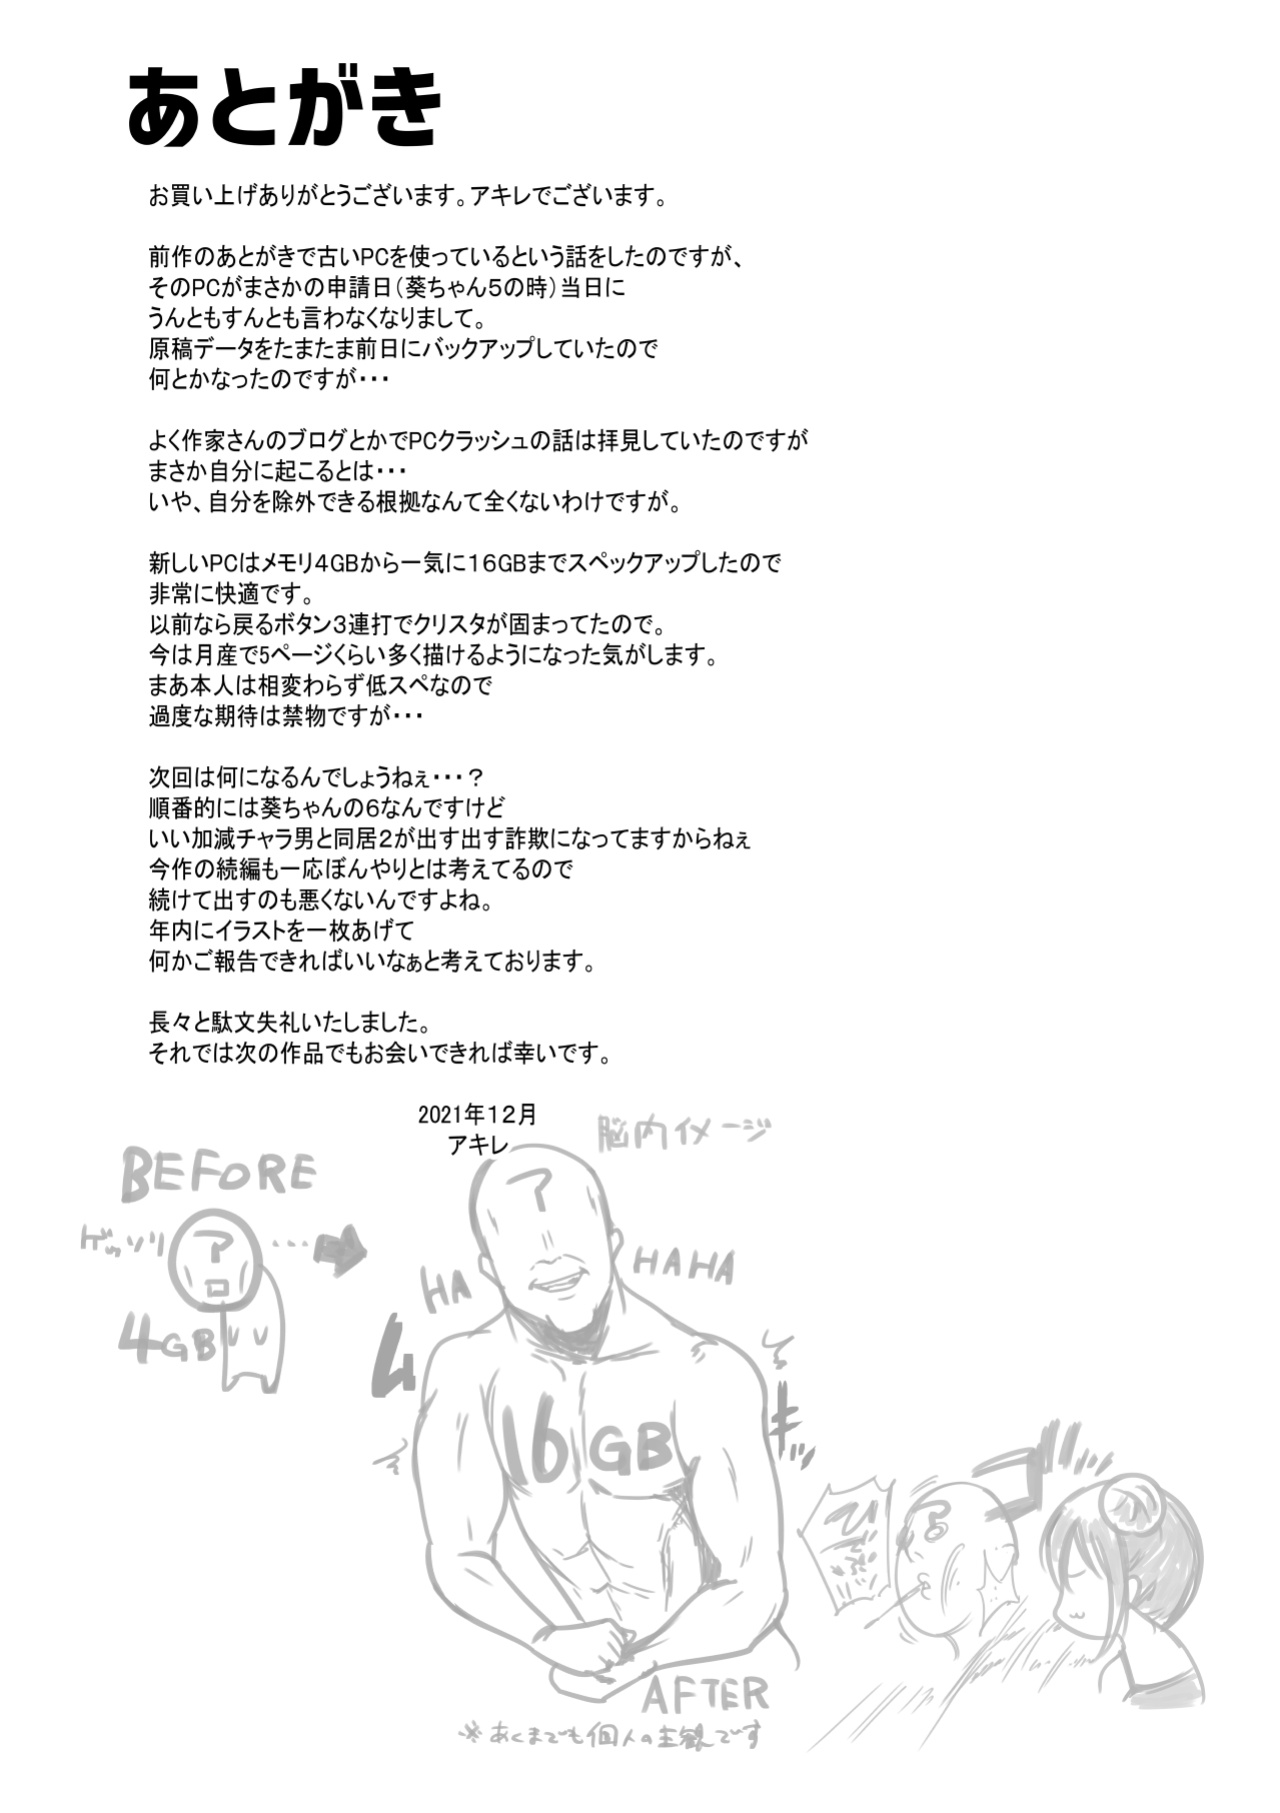 あとがき
お買い上げありがとうございます。アキレでございます。
前作のあとがきで古いPCを使っているという話をしたのですが、
そのPCがまさかの申請日（葵ちゃん５の時）当日に
うんともすんとも言わなくなりまして。
原稿データをたまたま前日にバックアップしていたので
何とかなったのですが・・・
よく作家さんのブログとかでPCクラッシュの話は拝見していたのですが
まさか自分に起こるとは・・・
いや、自分を除外できる根拠なんて全くないわけですが。
新しいPCはメモリ４GBから一気に１６GBまでスペックアップしたので
非常に快適です。
以前なら戻るボタン３連打でクリスタが固まってたので。
今は月産で5ページくらい多く描けるようになった気がします。
まあ本人は相変わらず低スペなので
過度な期待は禁物ですが・・・
次回は何になるんでしょうねぇ・・・？
順番的には葵ちゃんの６なんですけど
いい加減チャラ男と同居２が出す出す詐欺になってますからねぇ
今作の続編も一応ぼんやりとは考えてるので
続けて出すのも悪くないんですよね。
年内にイラストを一枚あげて
何かご報告できればいいなぁと考えております。
長々と駄文失礼いたしました。
それでは次の作品でもお会いできれば幸いです。
2021年１２月
アキレ
脳内イメージ
BEFORE
ゲッソリ
ア
・・・
4GB
ア
HA
HAHA
ムキッ
16GB
AFTER
※あくまでも個人の主観です
ゴッ